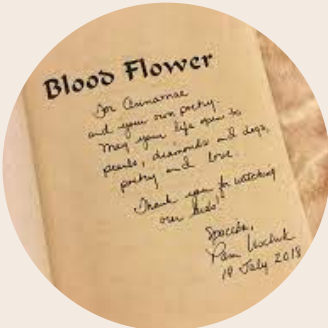 Blood Flower
For Annamae
and your own poetry.
May your life open to
pearls, diamonds and dogs,
poetry and love.
Thank you for watching
our kids!
Pam Uschuk
19 July 2018